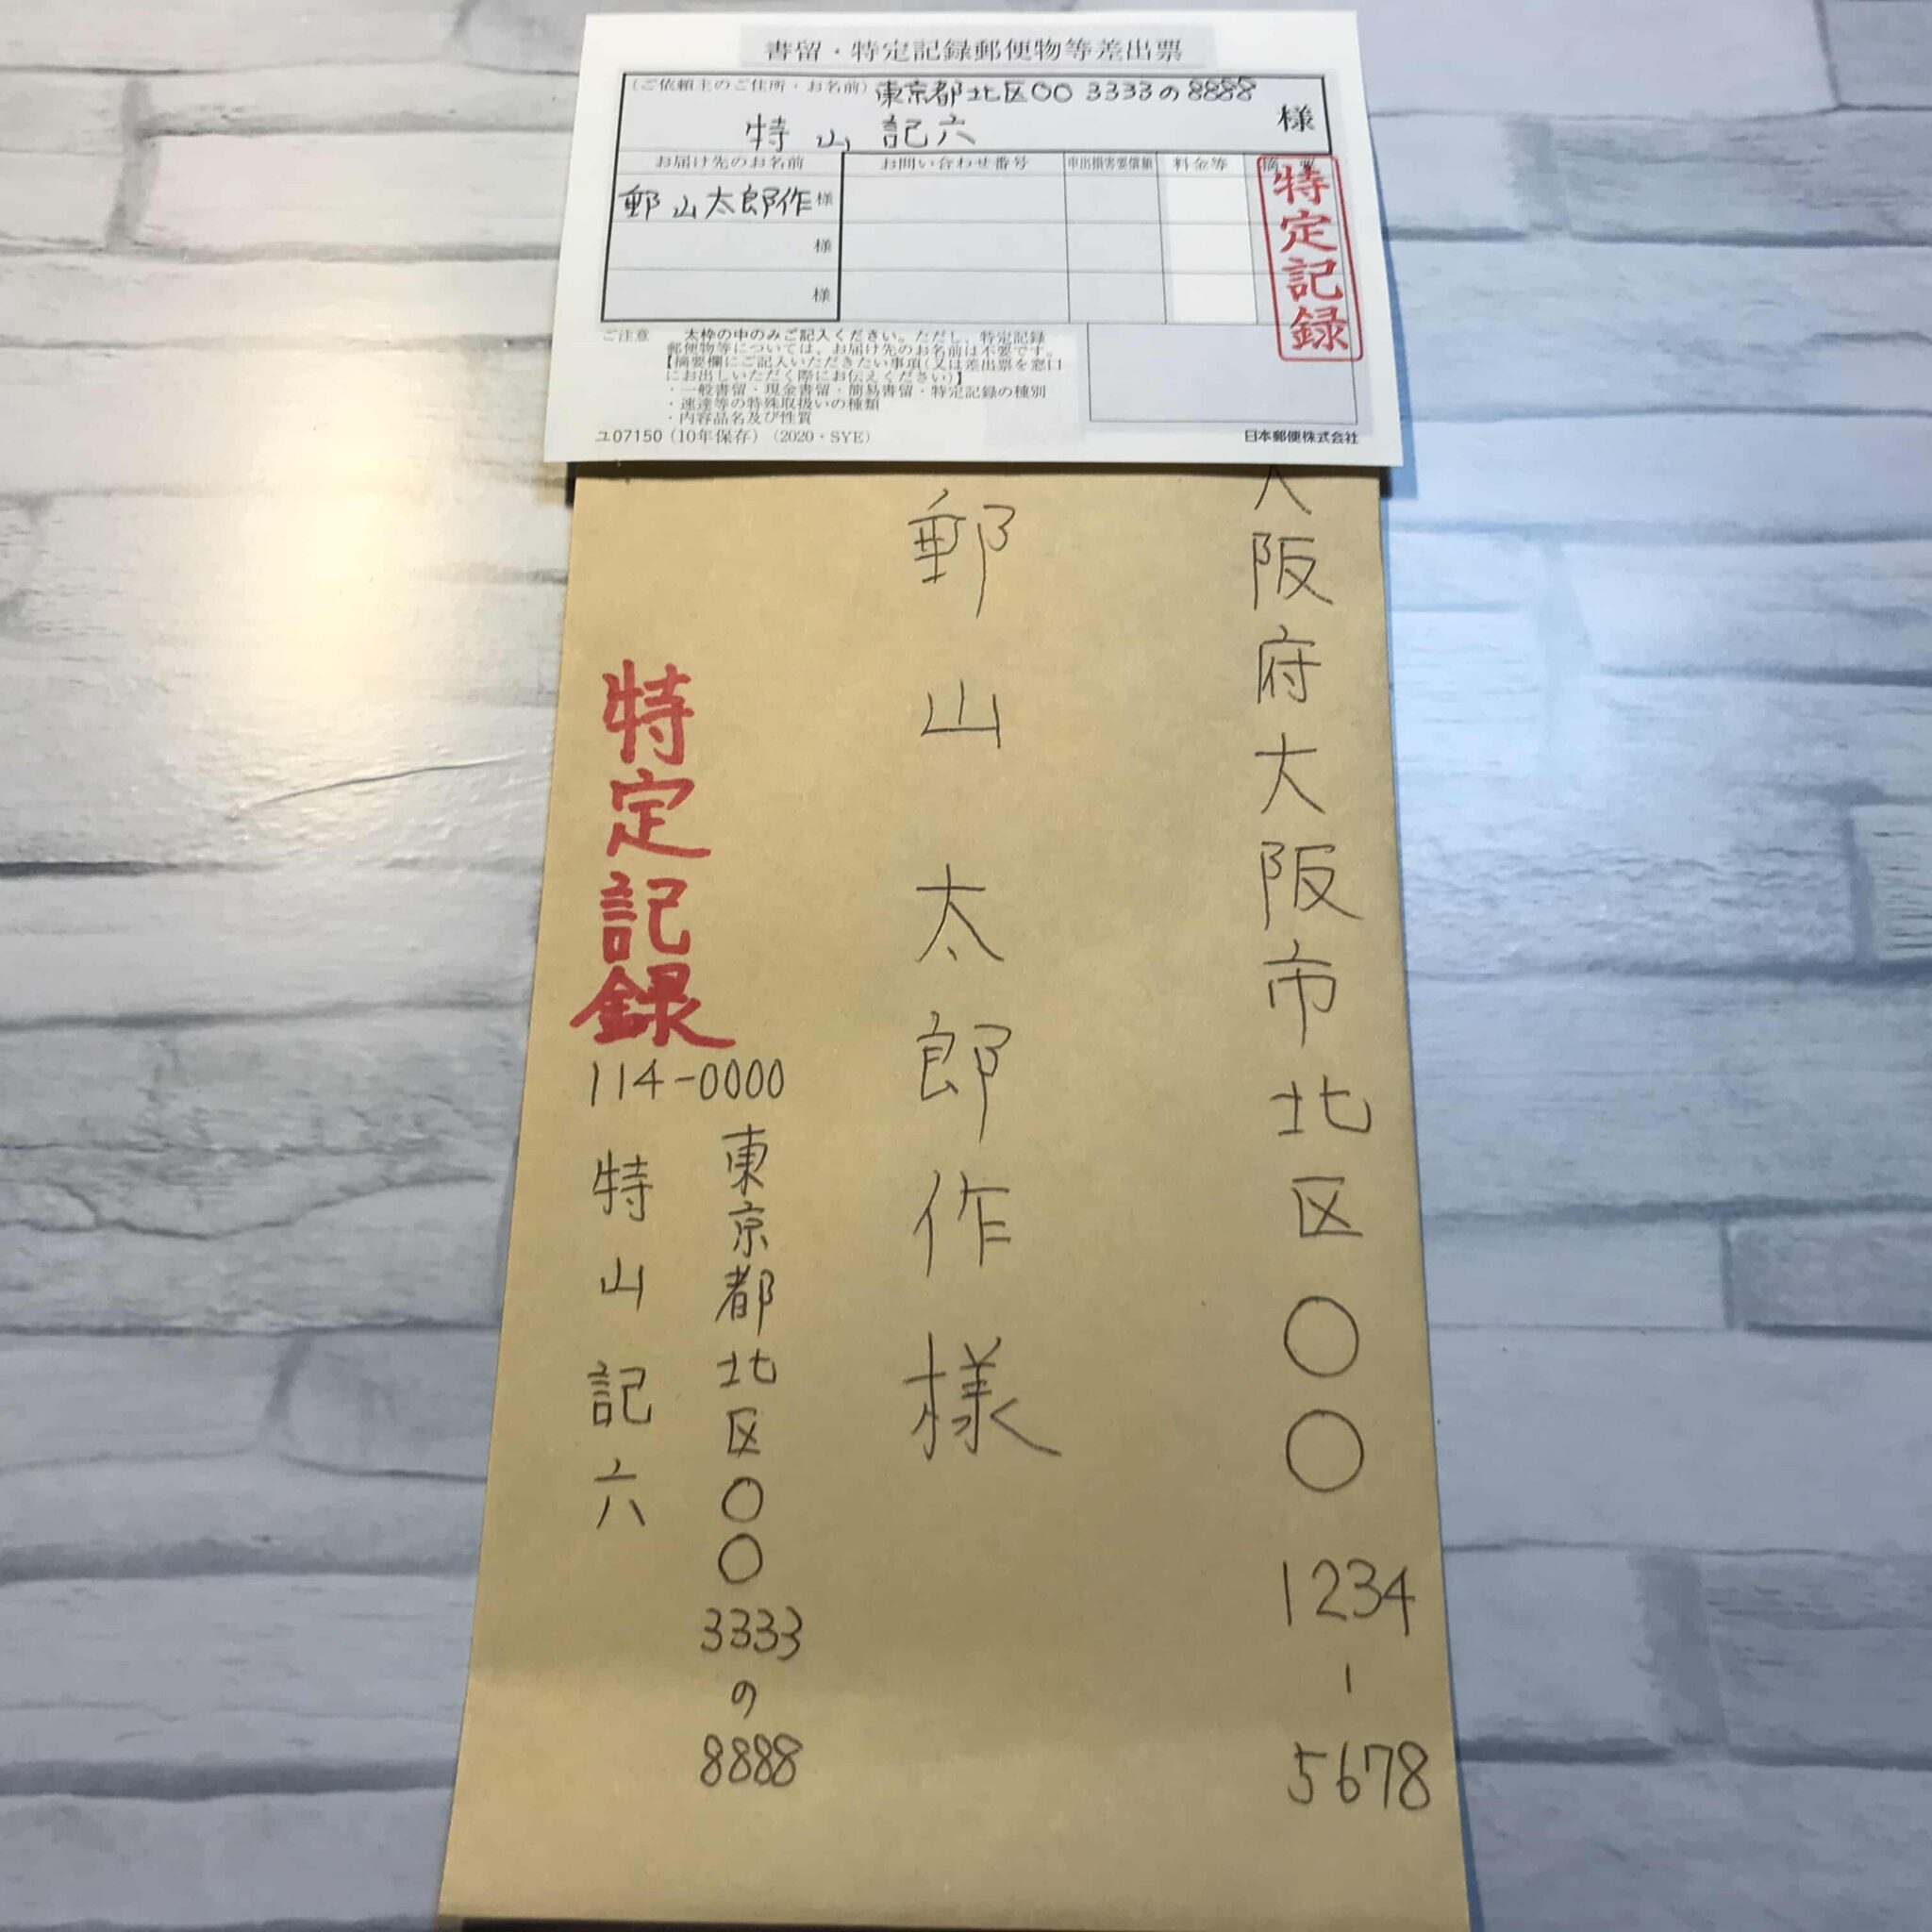 書留・特定記録郵便物等差出票
(ご依頼主のご住所・お名前) 東京都北区〇〇 3333の8888
特山 記六 様
お届け先のお名前 お問い合わせ番号 申出損害要償額 料金等 摘要
郵山太郎作 様
様
様
特定記録
ご注意 太枠の中のみご記入ください。ただし、特定記録
郵便物等については、お届け先のお名前は不要です。
【摘要欄にご記入いただきたい事項(又は差出票を窓口
にお出しいただく際にお伝えください)】
・一般書留・現金書留・簡易書留・特定記録の種別
・速達等の特殊取扱いの種類
・内容品名及び性質
ユ07150(10年保存)(2020・SYE)
日本郵便株式会社
大阪府大阪市北区〇〇 1234-5678
郵山太郎作様
特定記録
114-0000
東京都北区〇〇3333の8888
特山記六